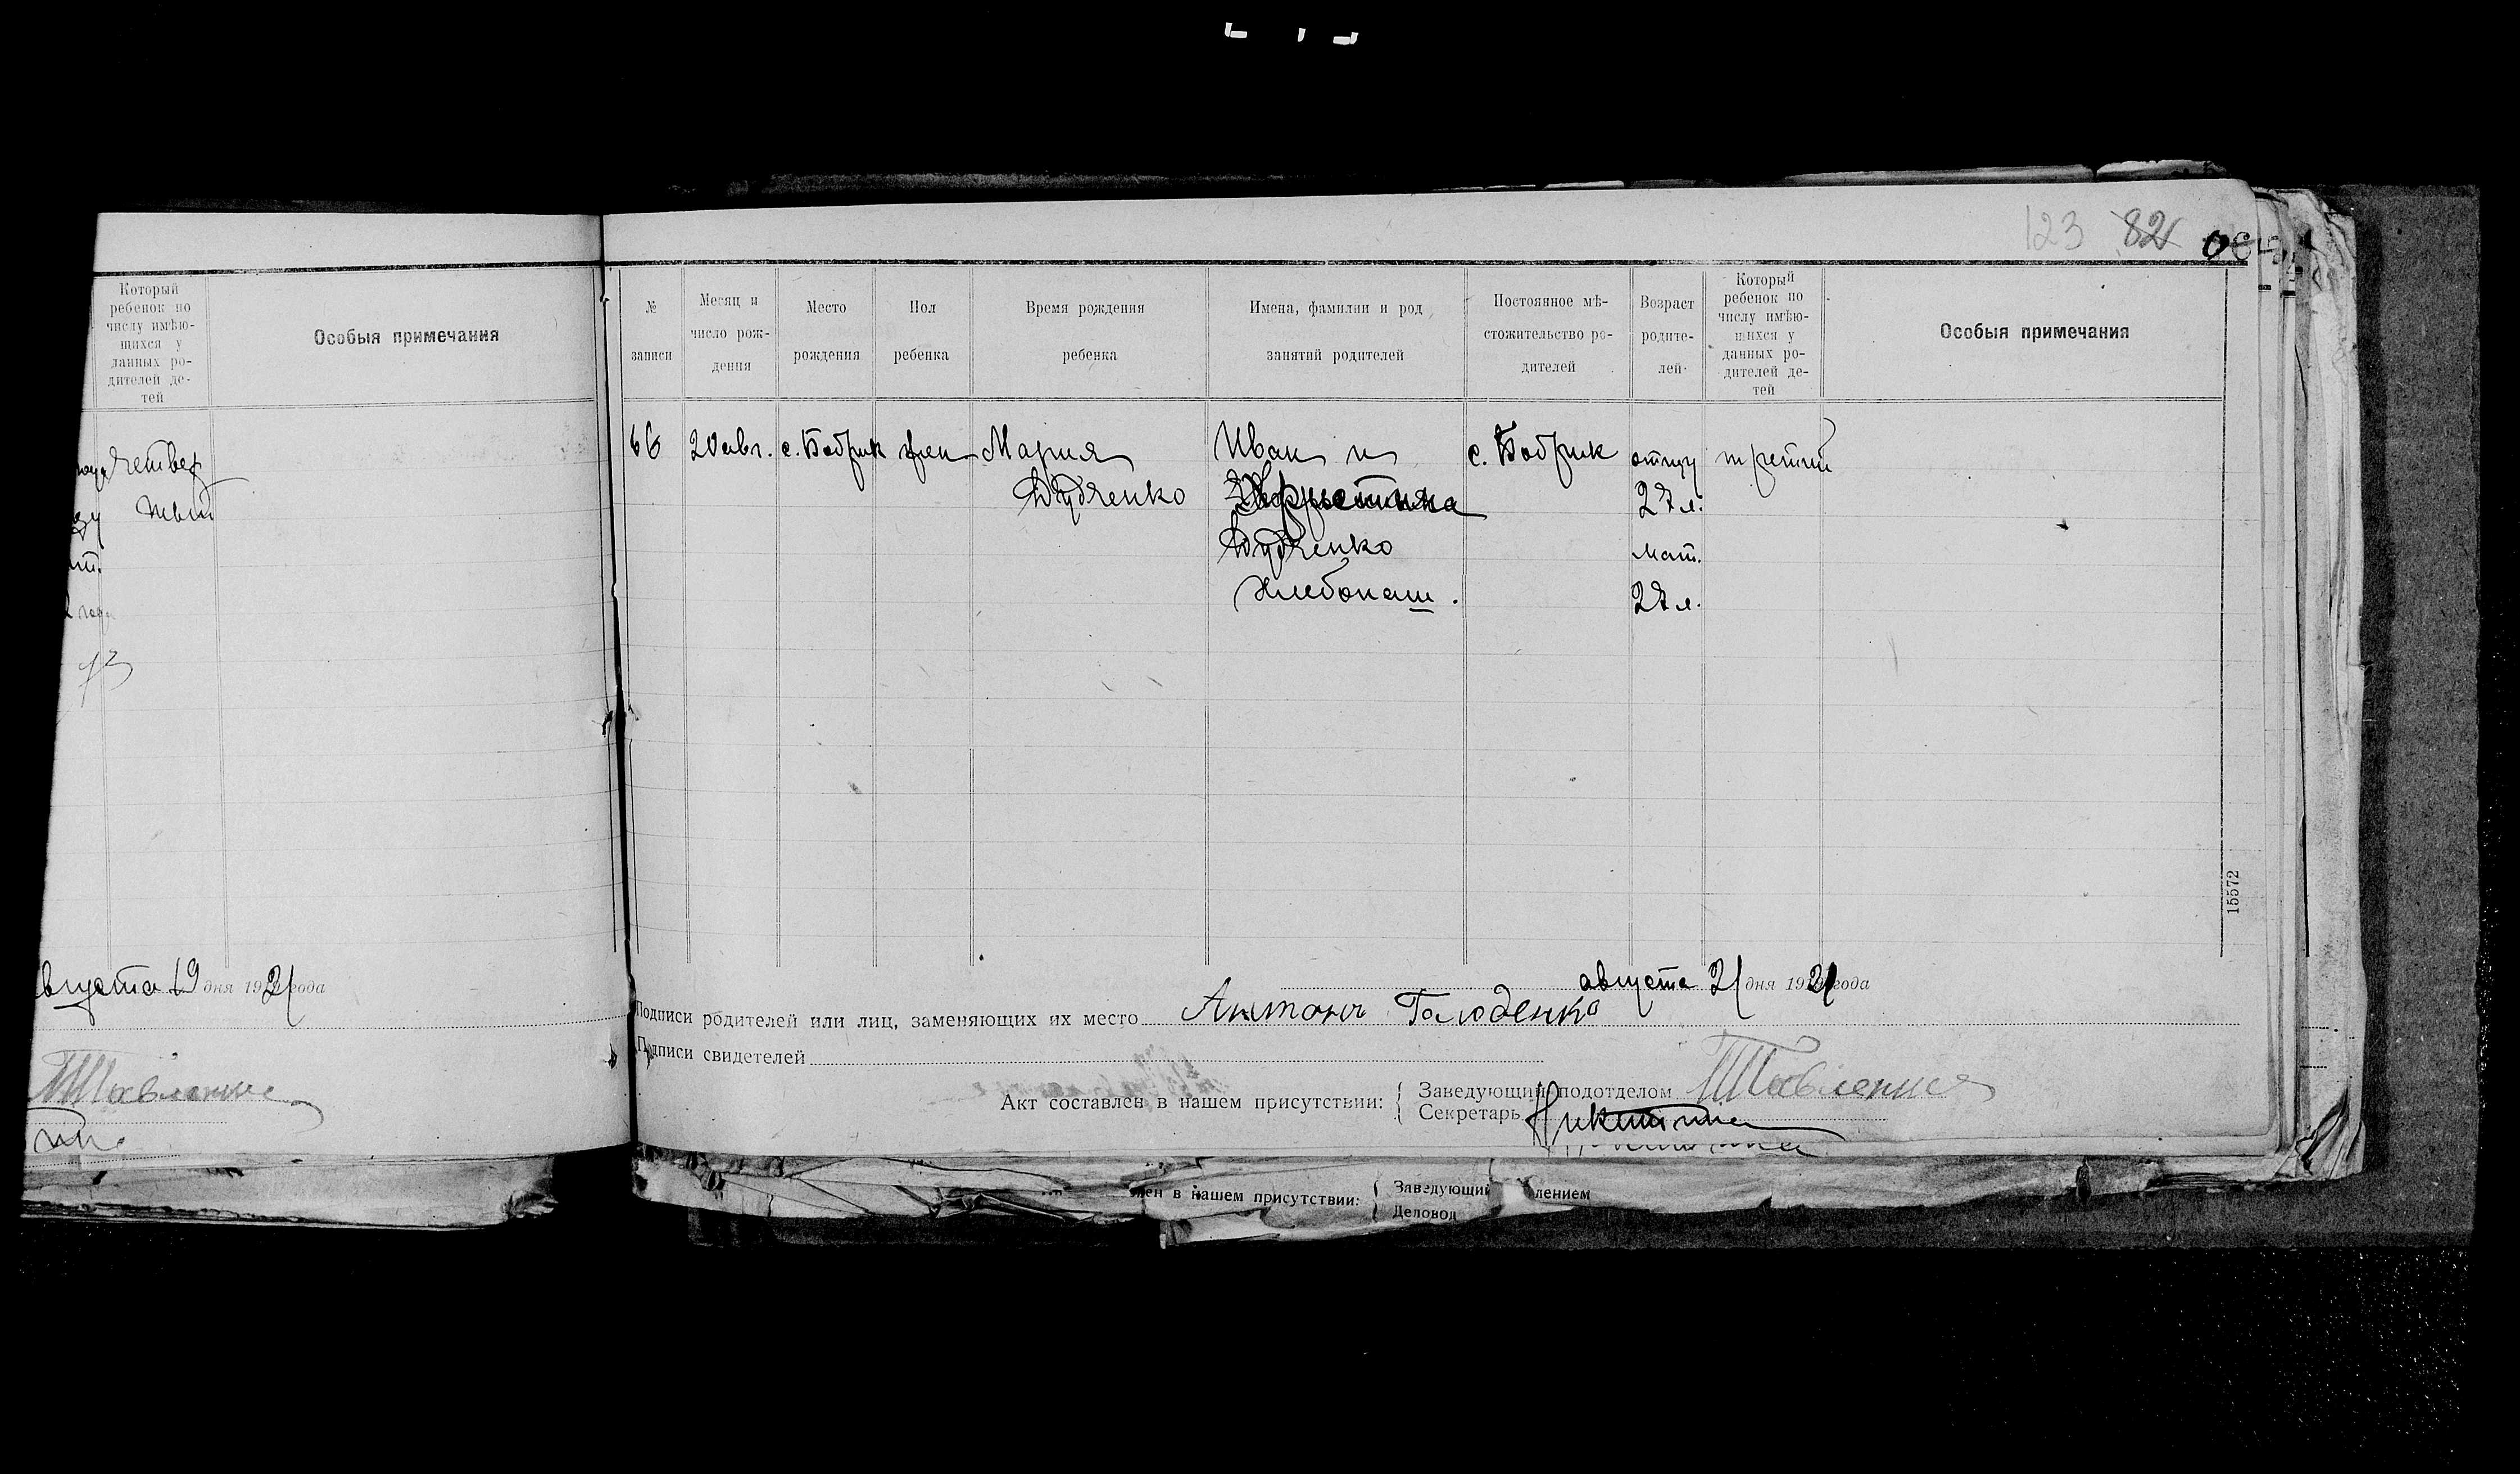 123 82
Который
ребенок по
числу имѣю-
щихся у
данных ро-
дителей де-
тей
Особыя примечания
четвер
тый
августа 19 дня 1921 года
№
записи
Месяц и
число рож-
дения
Место
рождения
Пол
ребенка
Время рождения
ребенка
Имена, фамилии и род
занятий родителей
Постоянное мѣ-
стожительство ро-
дителей
Возраст
родите-
лей
Который
ребенок по
числу имѣю-
щихся у
данных ро-
дителей де-
тей
Особыя примечания
66 20 авг. с. Бобрик жен Мария Иван и с. Бобрик отцу третий
Дудченко Христина 27 л.
Дудченко мат.
Хлебопаш. 27 л.
15572
августа 21 дня 1921 года
Подписи родителей или лиц, заменяющих их место Антонъ Голоденко
Подписи свидетелей
Акт составлен в нашем присутствии: { Заведующий подотделом
Секретарь Никитина
в нашем присутствии: { Заведующий
Деловод